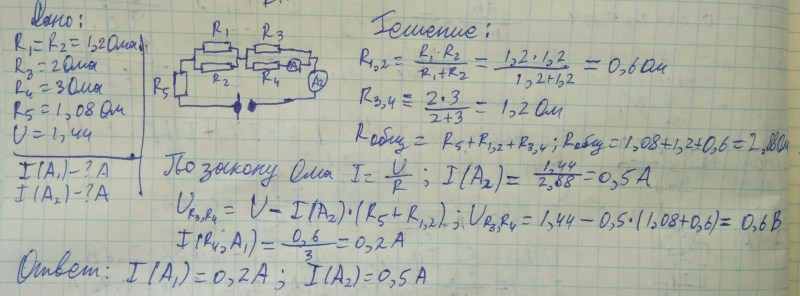 Дано:
R₁ = R₂ = 1,2 Ома
R₃ = 2 Ома
R₄ = 3 Ома
R₅ = 1,08 Ом
U = 1,44
I(A₁) - ? A
I(A₂) - ? A
R₁ R₃
R₂ R₄ A
R₅ A₂
Решение:
R₁,₂ = R₁·R₂ / R₁+R₂ = 1,2·1,2 / 1,2+1,2 = 0,6 Ом
R₃,₄ = 2·3 / 2+3 = 1,2 Ом
Rобщ = R₅ + R₁,₂ + R₃,₄; Rобщ = 1,08 + 1,2 + 0,6 = 2,88 Ом
По закону Ома I = U/R; I(A₂) = 1,44 / 2,88 = 0,5 A
U_R₃,R₄ = U - I(A₂)·(R₅ + R₁,₂); U_R₃,R₄ = 1,44 - 0,5·(1,08 + 0,6) = 0,6 В
I(R₄; A₁) = 0,6 / 3 = 0,2 A
Ответ: I(A₁) = 0,2 A; I(A₂) = 0,5 A